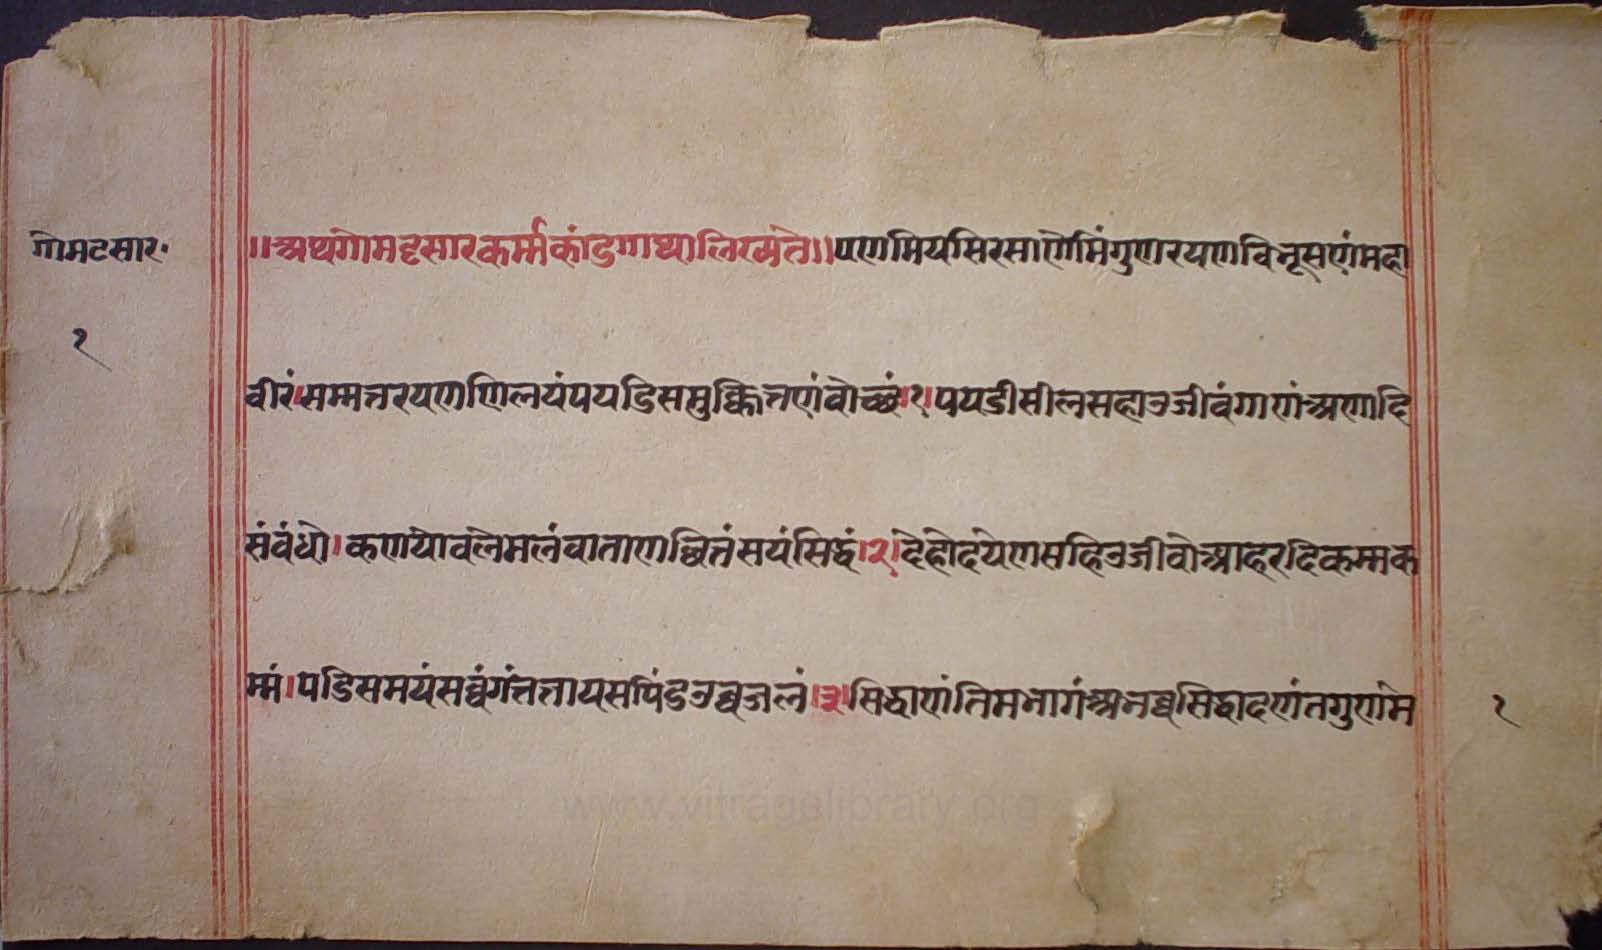 गोमटसार॰
१
॥अथगोमट्टसारकर्म्मकांडगाथालिख्यते॥पणमियसिरसाणेमिंगुणरयणविभूसणंमहा
वीरं।सम्मत्तरयणणिलयंपयडिसमुक्कित्तणंवोच्छं।१।पयडीसीलसहाउजीवंगाणंअणादि
संवंधो।कणयोवलेमलंवाताणच्छित्तंसयंसिद्धं।२।देहोदयेणसहिउजीवोआहरदिकम्मक
म्मं।पडिसमयंसव्वंगंत्ततायसपिंडउव्वजलं।३।सिद्धाणंतिमभागंअभव्वसिद्धादणंतगुणमे
१
www.vitragelibrary.org